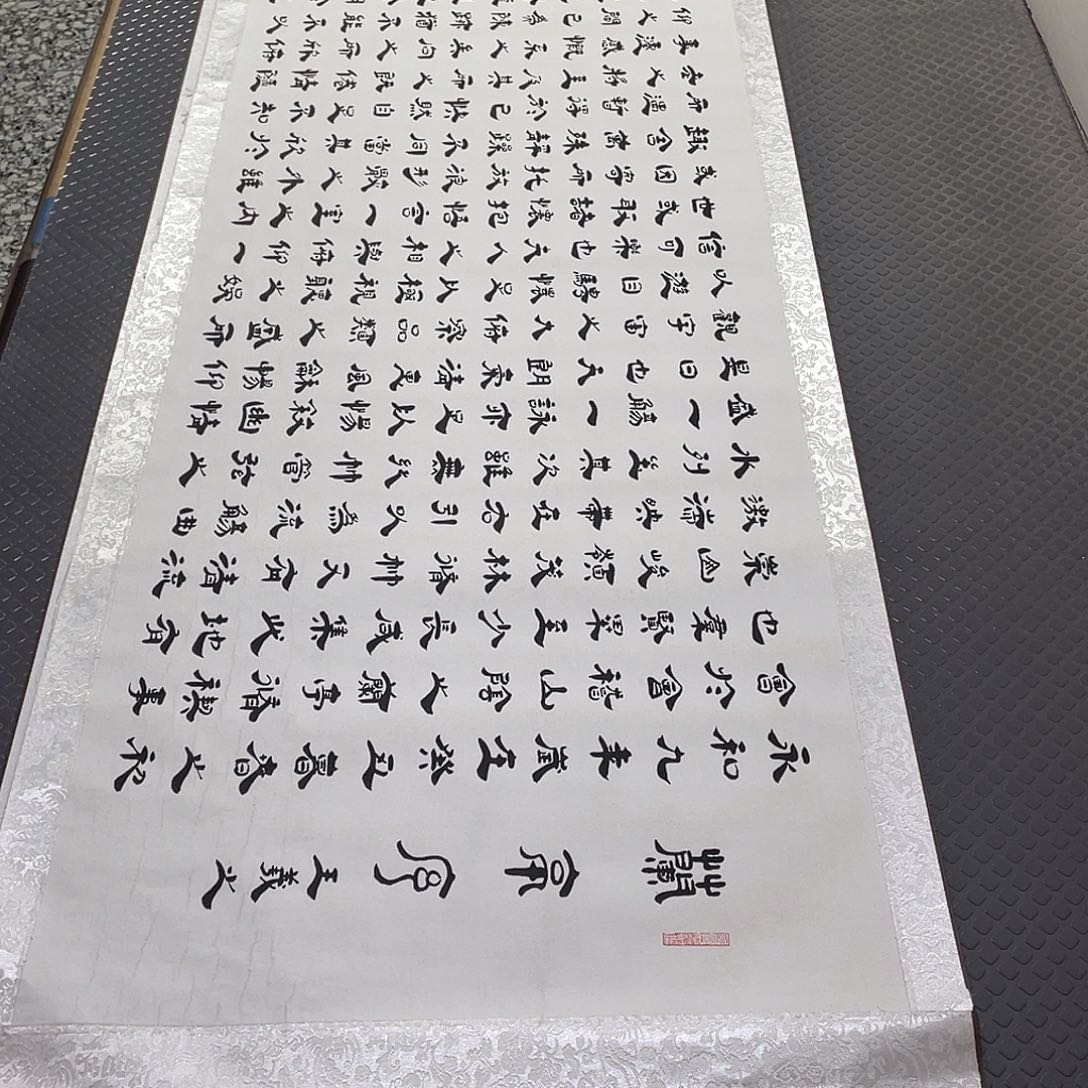 蘭亭序 王羲之
永和九年歲在癸丑暮春之初
會於會稽山陰之蘭亭脩禊事
也羣賢畢至少長咸集此地有
崇山峻領茂林脩竹又有清流
激湍映帶左右引以為流觴曲
水列坐其次雖無絲竹管弦之
盛一觴一詠亦足以暢敘幽情
是日也天朗氣清惠風龢暢仰
觀宇宙之大俯察品類之盛所
以遊目騁懷足以極視聽之娛
信可樂也夫人之相與俯仰一
世或取諸懷抱悟言一室之內
或因寄所託放浪形骸之外雖
趣舍萬殊靜躁不同當其欣於
所遇暫得於己快然自足不知
老之將至及其所之既倦情隨
事遷感慨係之矣向之所欣俛
仰之間已為陳跡猶不能不以